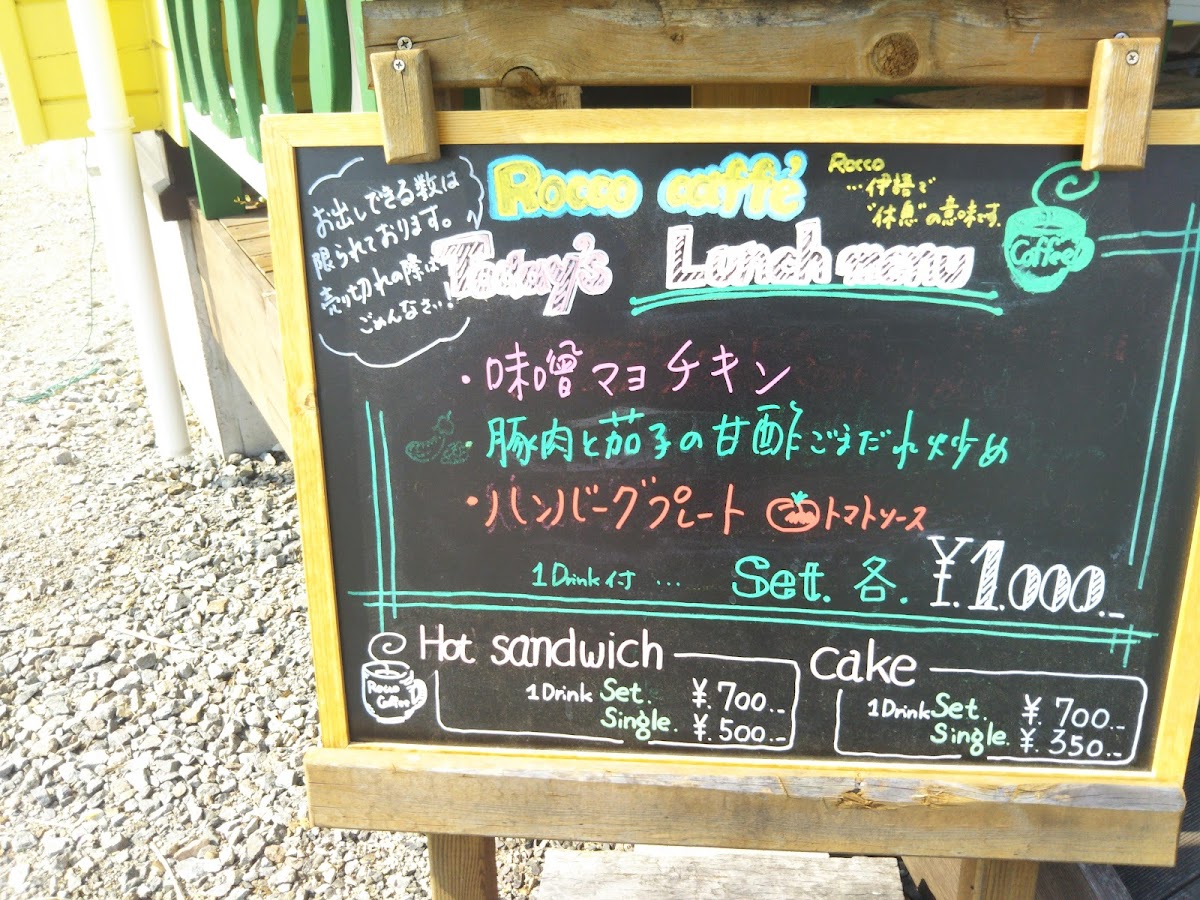 お出しできる数は
限られております。
売り切れの際は
ごめんなさい!
Rocco caffé
Rocco
…伊語で
"休息"の意味です。
Coffee
Today's Lunch menu
・味噌マヨチキン
豚肉と茄子の甘酢ごまだれ炒め
・ハンバーグプレート トマトソース
1Drink付 … Set. 各. ¥.1.000.-
Rocco
Coffee
Hot sandwich
1Drink Set. ¥.700.-
Single. ¥.500.-
cake
1Drink Set. ¥.700.-
Single. ¥.350.-